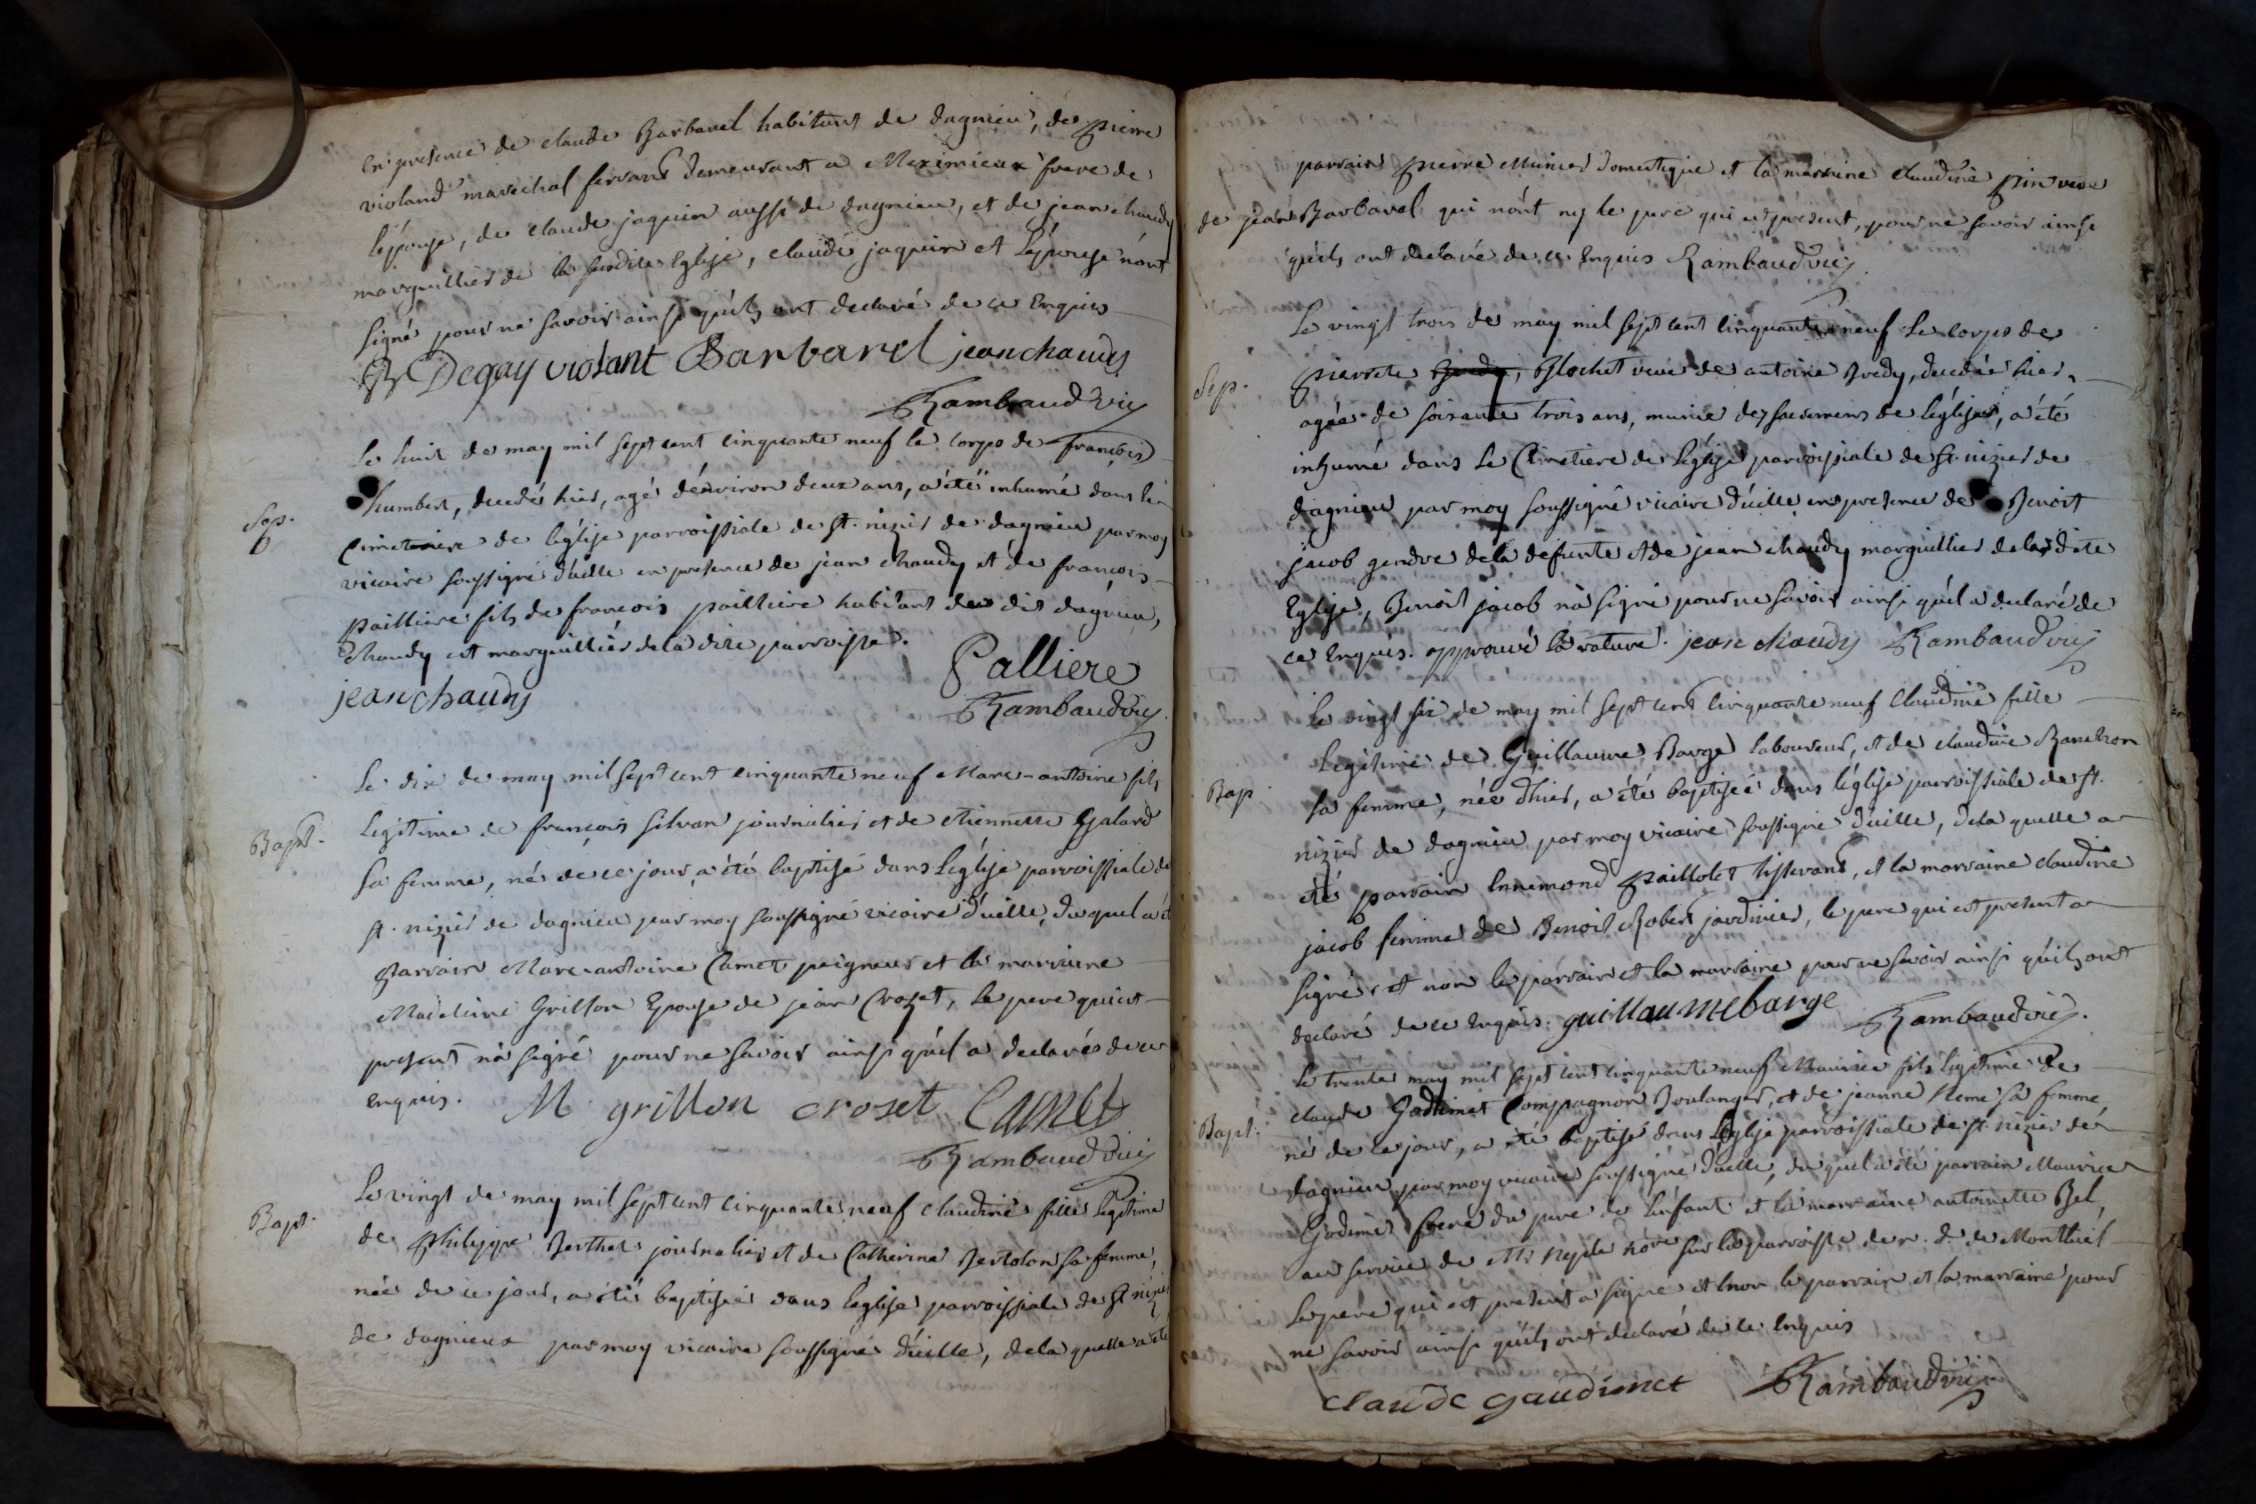 en presence de claude Barbarel habitant de dagnieu, de pierre
violand marechal ferrant demeurant a Meximieux frere de
l'épouse, de claude jaquin aussi de dagnieu, et de jean chaudy
marguillier de la susdite Eglise, claude jaquin et l'épouse n'ont
signé pour ne savoir ainsi qu'ils ont declaré de ce Enquis
Degay violant Barbarel jean chaudy
Rambaud vic
Le huit de may mil sept cent cinquante neuf le corps de françois
Sep.
humbert, decedé hier, agé d'environ deux ans, a été inhumé dans le
Cimetiere de l'église parroissiale de st. nizier de dagnieu par moy
vicaire soussigné d'icelle en presence de jean chaudy et de françois
pailliere fils de françois pailliere habitant du dit dagnieu,
chaudy est marguillier de la dite parroisse.
Palliere
jean chaudy
Rambaud vic
Le dix de may mil sept cent cinquante neuf Marc-antoine fils
Bapt.
Legitime de françois silvan journalier et de etiennette Galard
sa femme, né de ce jour, a été baptisé dans l'église parroissiale de
st. nizier de dagnieu par moy soussigné vicaire d'icelle, du quel a été
parrain Marc-antoine Camet peigneur et la marraine
Madeleine Grillon Epouse de jean Crozet, le pere qui est
present n'a signé pour ne savoir ainsi qu'il a declaré de ce
enquis. M grillon croset Camet
Rambaud vic
Le vingt de may mil sept cent cinquante neuf claudine fille legitime
Bapt.
de philippe Berthet journalier et de Catherine Bertolon sa femme,
née de ce jour, a été baptisée dans l'église parroissiale de st nizier
de dagnieux par moy vicaire soussigné d'icelle, de la quelle a été
parrain pierre Munier domestique et la marraine claudine pin veuve
de jean Barbarel qui n'ont ny le pere qui est present, pour ne savoir ainsi
qu'ils ont declaré de ce Enquis Rambaud vic
Le vingt trois de may mil sept cent cinquante neuf le corps de
Sep.
pierrette Blochet veuve de antoine Bredy, decedée hier,
agée de soixante trois ans, munie des sacremens de l'église, a été
inhumé dans le Cimetiere de l'église parroissiale de st. nizier de
dagnieu par moy soussigné vicaire d'icelle en presence de Benoit
jacob gendre de la defunte et de jean chaudy marguillier de la dite
Eglise, Benoit jacob n'a signé pour ne savoir ainsi qu'il a declaré de
ce Enquis. approuvé la rature. jean chaudy Rambaud vic
Le vingt six de may mil sept cent cinquante neuf Claudine fille
Bap.
Legitime de Guillaume Barge laboureur, et de claudine Banchon
sa femme, née d'hier, a été baptisée dans l'église parroissiale de st.
nizier de dagnieu par moy vicaire soussigné d'icelle, de la quelle a
été parrain Ennemond paillolet tisserand, et la marraine claudine
jacob femme de Benoit Robert jardinier, le pere qui est present a
signé et non le parrain et la marraine pour ne savoir ainsi qu'ils ont
declaré de ce Enquis. guillaume barge
Rambaud vic.
Le trente may mil sept cent cinquante neuf Maurice fils legitime de
claude Godimet Compagnon Boulanger, et de jeanne sa femme
Bapt.
né de ce jour, a été baptisé dans l'église parroissiale de st. nizier de
dagnieu par moy vicaire soussigné d'icelle, du quel a été parrain Maurice
Godimet frere du pere de l'enfant et la marraine antoinette Bel,
au service de Mr sur la parroisse de n. d. de Montluel
le pere qui est present a signé et non le parrain et la marraine pour
ne savoir ainsi qu'ils ont declaré de ce Enquis
claude gaudimet Rambaud vic